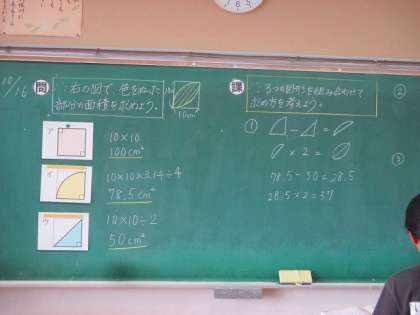 10/16
問
:右の図で、色をぬった
部分の面積を求めよう。
10
10cm
ア
10×10
100cm²
イ
10×10×3.14÷4
78.5cm²
ウ
10×10÷2
50cm²
課
:3つの図形を組み合わせて
求め方を考えよう。
①
－ ＝
×2＝
78.5-50=28.5
28.5×2=57
②
③